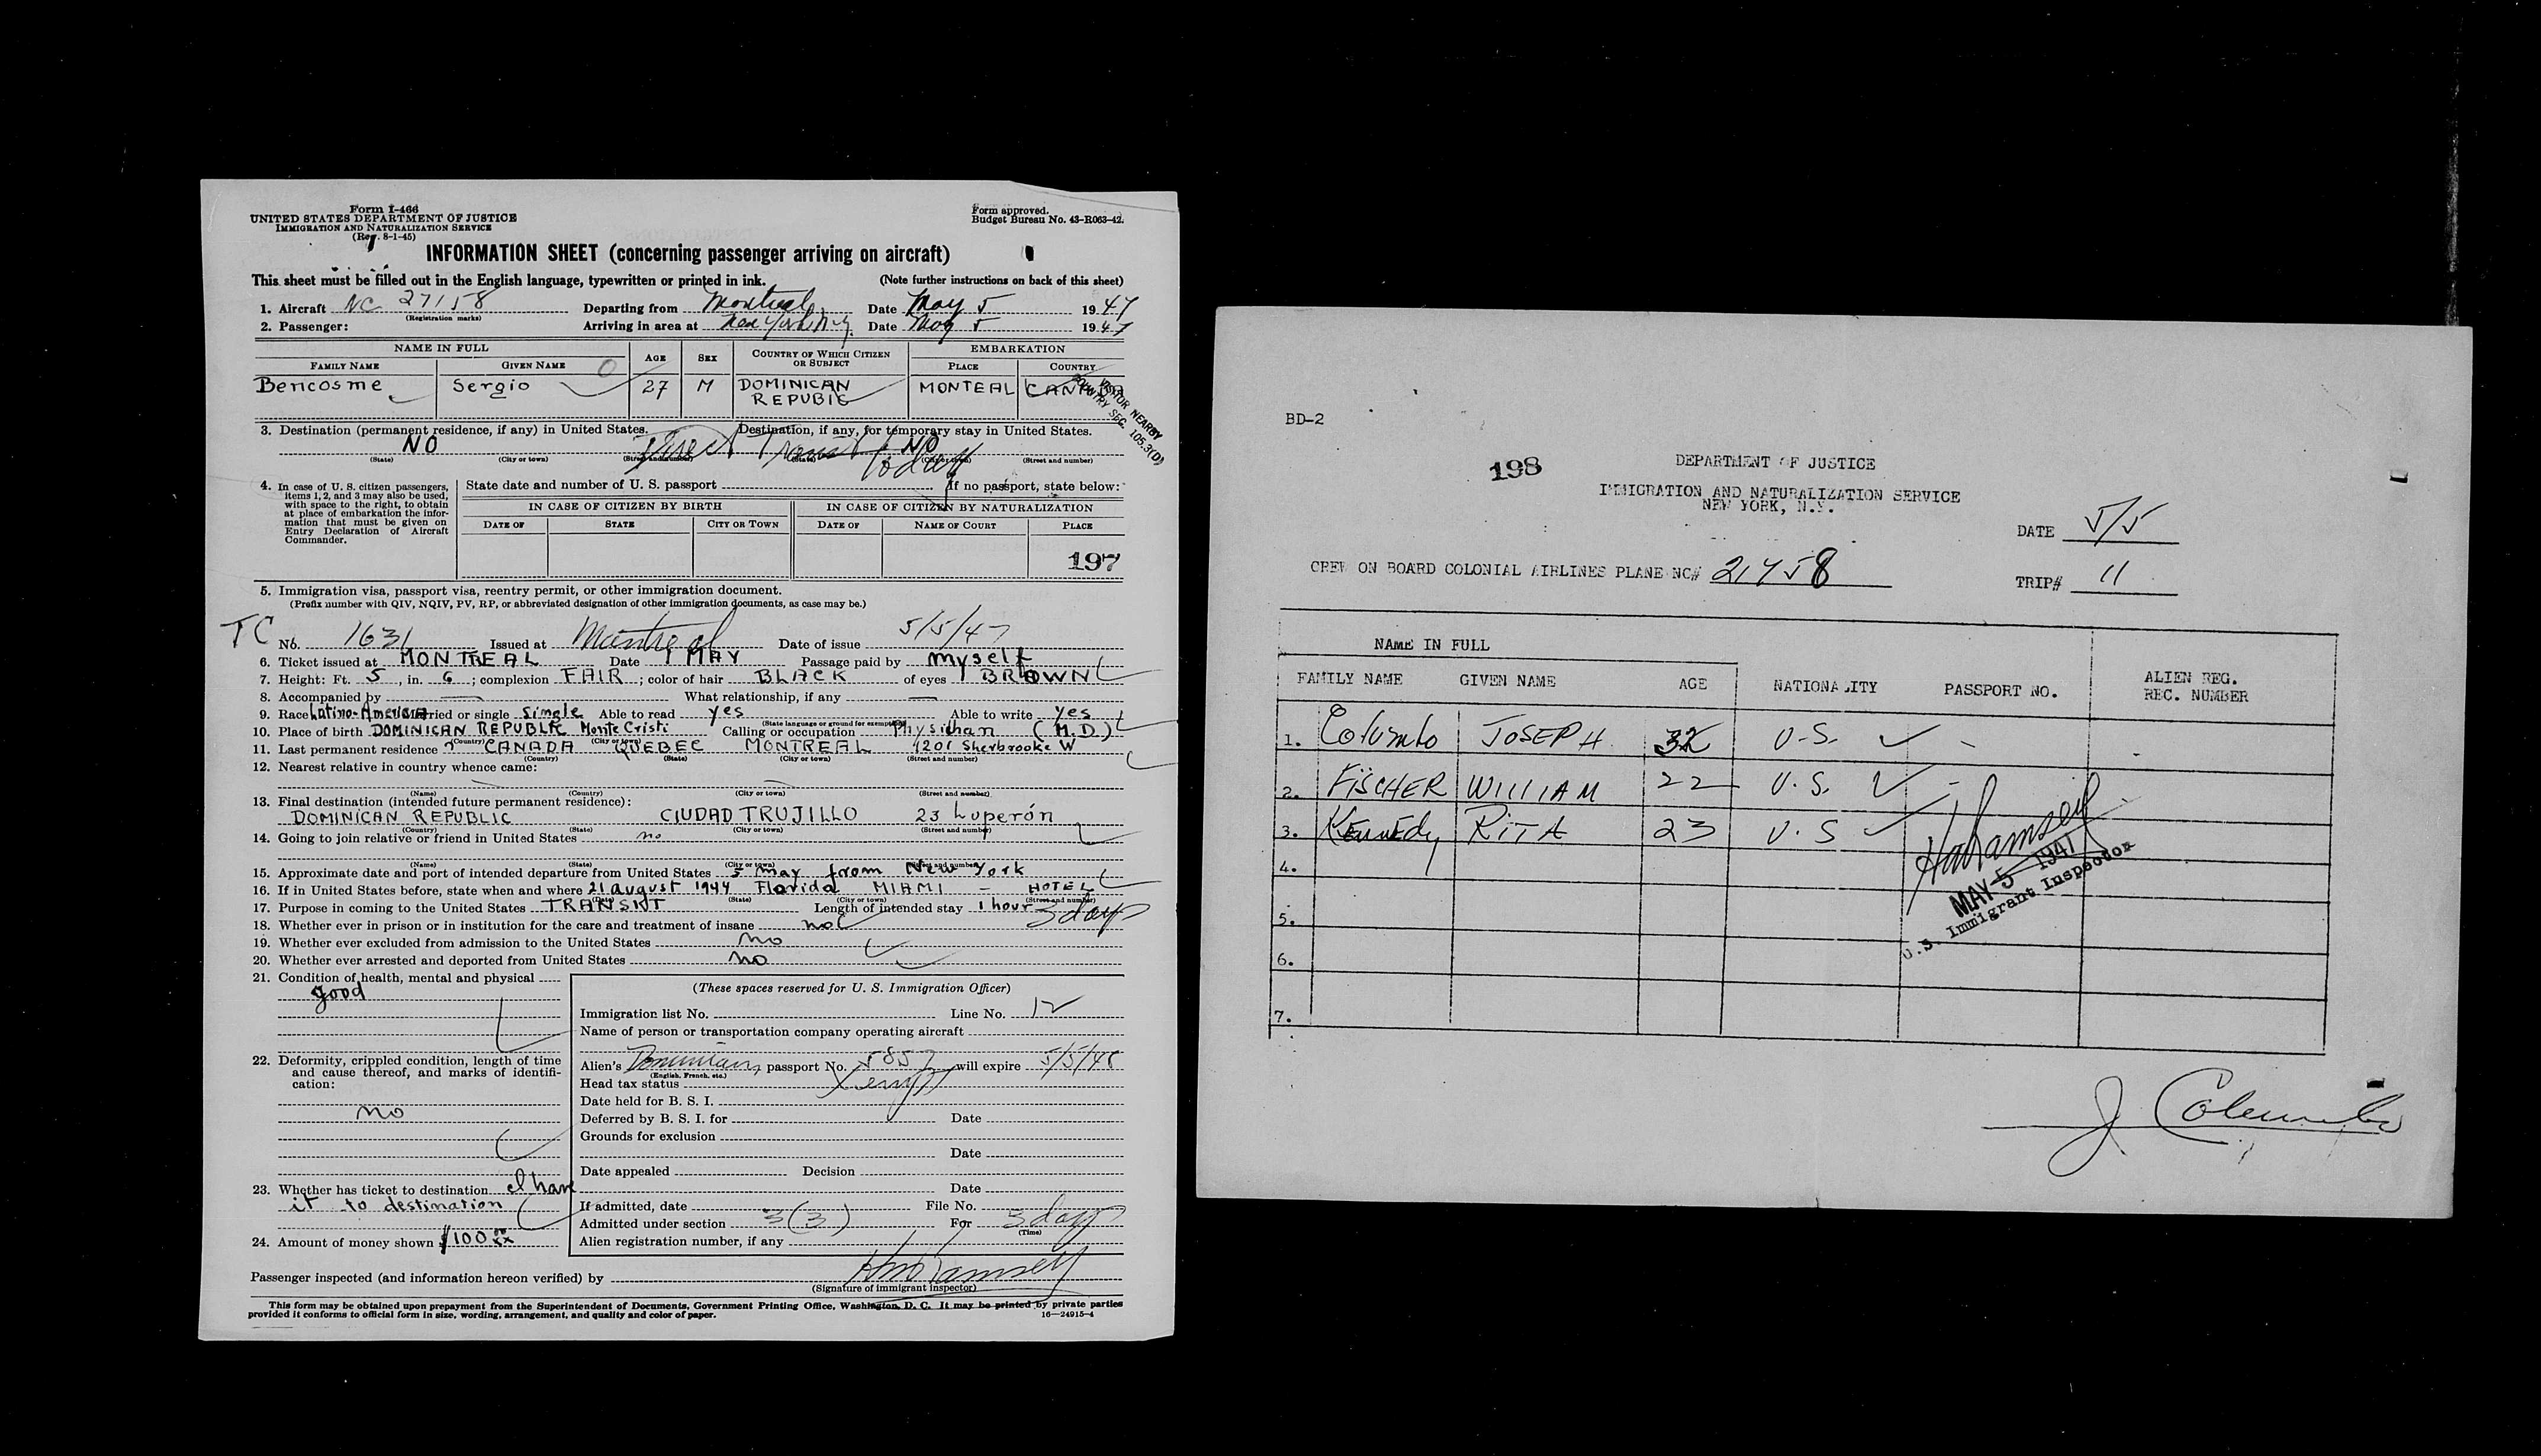 Form I-466
UNITED STATES DEPARTMENT OF JUSTICE
IMMIGRATION AND NATURALIZATION SERVICE
(Rev. 8-1-45)
Form approved.
Budget Bureau No. 43-R063-42.
INFORMATION SHEET (concerning passenger arriving on aircraft)
This sheet must be filled out in the English language, typewritten or printed in ink. (Note further instructions on back of this sheet)
1. Aircraft NC 27158 Departing from Montreal Date May 5 1947
(Registration marks)
2. Passenger: Arriving in area at New York N.Y. Date May 5 1947
NAME IN FULL AGE SEX COUNTRY OF WHICH CITIZEN OR SUBJECT EMBARKATION
FAMILY NAME GIVEN NAME PLACE COUNTRY
Bencosme Sergio 27 M DOMINICAN REPUBIC MONTEAL CANADA
VISITOR NEARBY
COUNTRY SEC. 105.3(D)
3. Destination (permanent residence, if any) in United States. Destination, if any, for temporary stay in United States.
NO Direct Transit today NO
(State) (City or town) (Street and number) (State) (City or town) (Street and number)
4. In case of U. S. citizen passengers, items 1, 2, and 3 may also be used, with space to the right, to obtain at place of embarkation the information that must be given on Entry Declaration of Aircraft Commander.
State date and number of U. S. passport If no passport, state below:
IN CASE OF CITIZEN BY BIRTH IN CASE OF CITIZEN BY NATURALIZATION
DATE OF STATE CITY OR TOWN DATE OF NAME OF COURT PLACE
197
5. Immigration visa, passport visa, reentry permit, or other immigration document.
(Prefix number with QIV, NQIV, PV, RP, or abbreviated designation of other immigration documents, as case may be.)
TC No. 1631 Issued at Montreal Date of issue 5/5/47
6. Ticket issued at MONTREAL Date 1 MAY Passage paid by myself
7. Height: Ft. 5, in. 6; complexion FAIR; color of hair BLACK of eyes BROWN
8. Accompanied by What relationship, if any
9. Race Latino-America Married or single single Able to read yes Able to write yes
(State language or ground for exemption)
10. Place of birth DOMINICAN REPUBLIC Monte Cristi Calling or occupation Physichan (M.D.)
(Country) (City or town)
11. Last permanent residence CANADA QUEBEC MONTREAL 4201 Sherbrooke W
(Country) (State) (City or town) (Street and number)
12. Nearest relative in country whence came:
(Name) (Country) (City or town) (Street and number)
13. Final destination (intended future permanent residence):
DOMINICAN REPUBLIC CIUDAD TRUJILLO 23 Luperón
(Country) (State) (City or town) (Street and number)
14. Going to join relative or friend in United States no
(Name) (State) (City or town) (Street and number)
15. Approximate date and port of intended departure from United States 5 May from New York
16. If in United States before, state when and where 21 august 1944 Florida MIAMI - HOTEL
(Date) (State) (City or town) (Street and number)
17. Purpose in coming to the United States TRANSIT Length of intended stay 1 hour 3 days
18. Whether ever in prison or in institution for the care and treatment of insane no
19. Whether ever excluded from admission to the United States no
20. Whether ever arrested and deported from United States no
21. Condition of health, mental and physical
good
22. Deformity, crippled condition, length of time and cause thereof, and marks of identification:
no
23. Whether has ticket to destination I have
it to destination
24. Amount of money shown $100
(These spaces reserved for U. S. Immigration Officer)
Immigration list No. Line No. 12
Name of person or transportation company operating aircraft
Alien's Dominican passport No. 5857 will expire 5/5/48
(English, French, etc.)
Head tax status exempt
Date held for B. S. I.
Deferred by B. S. I. for Date
Grounds for exclusion
Date
Date appealed Decision
Date
If admitted, date File No.
Admitted under section 3(3) For 3 days
(Time)
Alien registration number, if any
Passenger inspected (and information hereon verified) by HRamsey
(Signature of immigrant inspector)
This form may be obtained upon prepayment from the Superintendent of Documents, Government Printing Office, Washington, D. C. It may be printed by private parties
provided it conforms to official form in size, wording, arrangement, and quality and color of paper. 16—24915-4
BD-2
198
DEPARTMENT OF JUSTICE
IMMIGRATION AND NATURALIZATION SERVICE
NEW YORK, N.Y.
DATE 5/5
CREW ON BOARD COLONIAL AIRLINES PLANE NC# 21758
TRIP# 11
NAME IN FULL
FAMILY NAME GIVEN NAME AGE NATIONALITY PASSPORT NO. ALIEN REG. REC. NUMBER
1. Columbo JOSEPH 32 U.S.
2. FISCHER WILLIAM 22 U.S.
3. Kennedy RITA 23 U.S
4.
5.
6.
7.
HRamsey
MAY 5 1947
U.S. Immigrant Inspector
J. Columbo